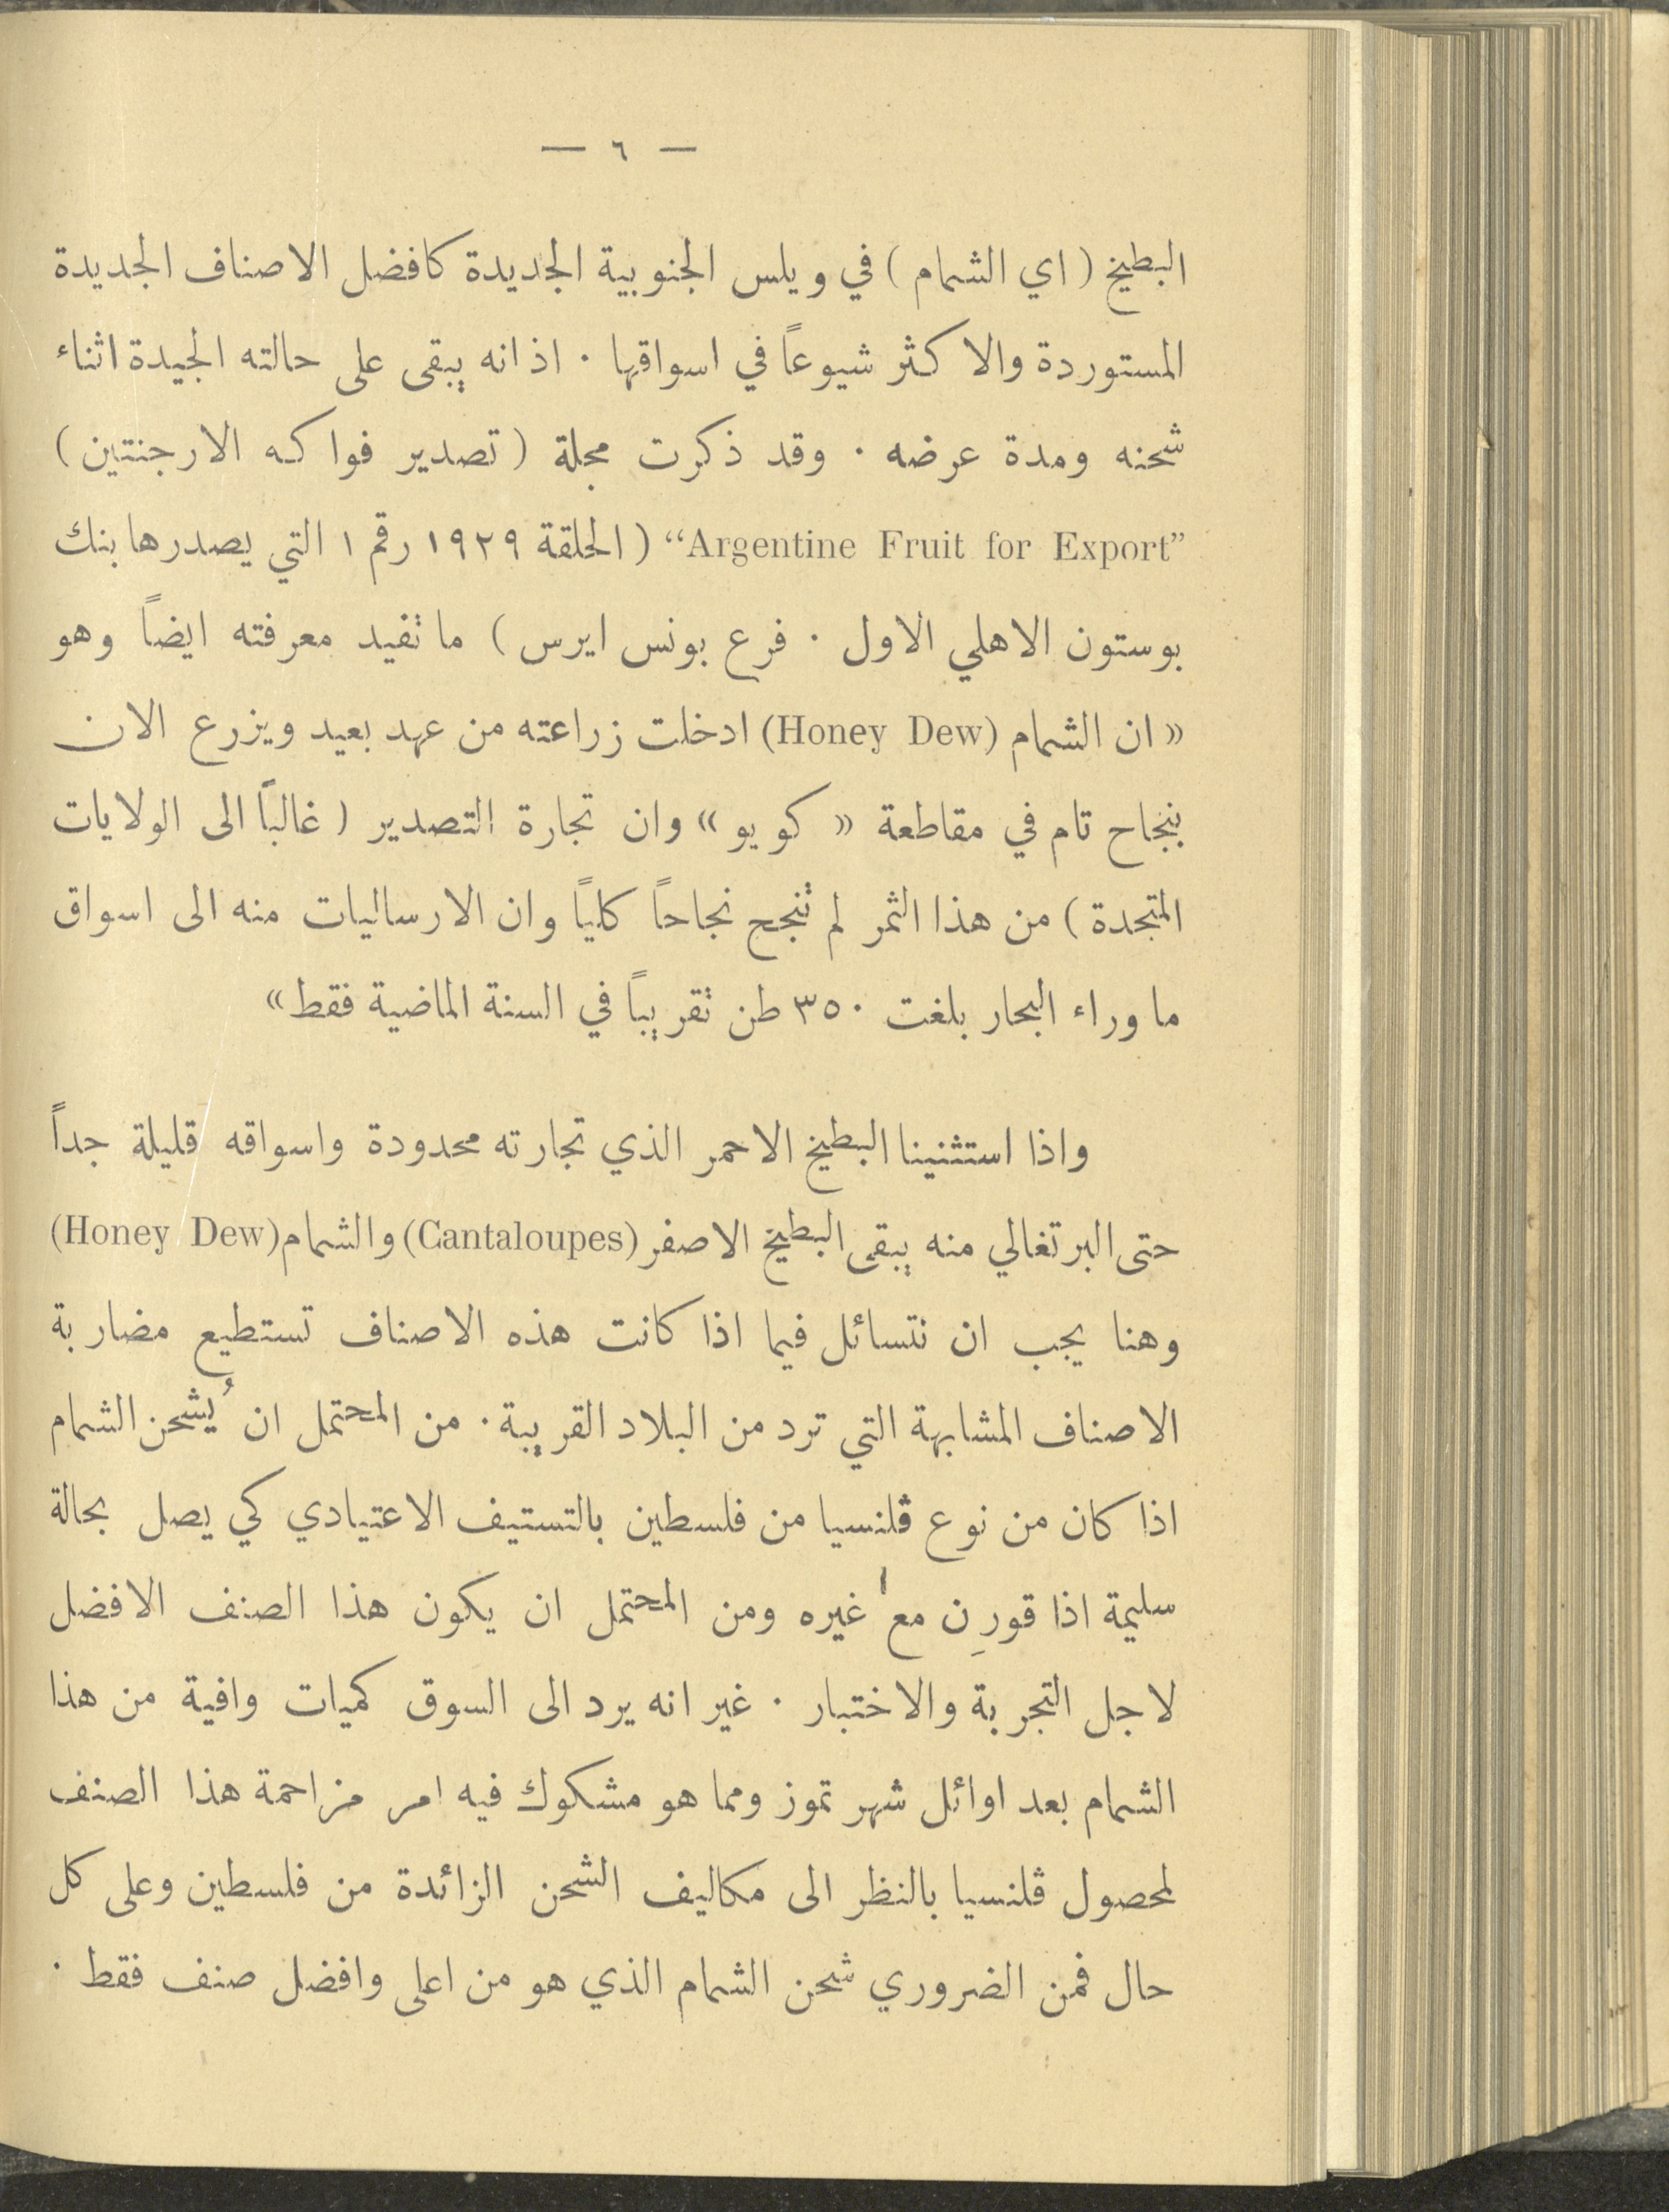 — ٦ —
البطيخ ( اي الشمام ) في ويلس الجنوبية الجديدة كافضل الاصناف الجديدة
المستوردة والاكثر شيوعاً في اسواقها . اذ انه يبقى على حالته الجيدة اثناء
شحنه ومدة عرضه . وقد ذكرت مجلة ( تصدير فواكه الارجنتين )
“Argentine Fruit for Export” ( الحلقة ١٩٢٩ رقم ١ التي يصدرها بنك
بوستون الاهلي الاول . فرع بونس ايرس ) ما تفيد معرفته ايضاً وهو
« ان الشمام (Honey Dew) ادخلت زراعته من عهد بعيد ويزرع الان
بنجاح تام في مقاطعة « كويو » وان تجارة التصدير ( غالباً الى الولايات
المتحدة ) من هذا الثمر لم تنجح نجاحاً كلياً وان الارساليات منه الى اسواق
ما وراء البحار بلغت ٣٥٠ طن تقريباً في السنة الماضية فقط »
واذا استثنينا البطيخ الاحمر الذي تجارته محدودة واسواقه قليلة جداً
حتى البرتغالي منه يبقى البطيخ الاصفر (Cantaloupes) والشمام (Honey Dew)
وهنا يجب ان نتسائل فيما اذا كانت هذه الاصناف تستطيع مضاربة
الاصناف المشابهة التي ترد من البلاد القريبة . من المحتمل ان يُشحن الشمام
اذا كان من نوع ڤلنسيا من فلسطين بالتستيف الاعتيادي كي يصل بحالة
سليمة اذا قورِن مع غيره ومن المحتمل ان يكون هذا الصنف الافضل
لاجل التجربة والاختبار . غير انه يرد الى السوق كميات وافية من هذا
الشمام بعد اوائل شهر تموز ومما هو مشكوك فيه امر مزاحمة هذا الصنف
لمحصول ڤلنسيا بالنظر الى مكاليف الشحن الزائدة من فلسطين وعلى كل
حال فمن الضروري شحن الشمام الذي هو من اعلى وافضل صنف فقط .